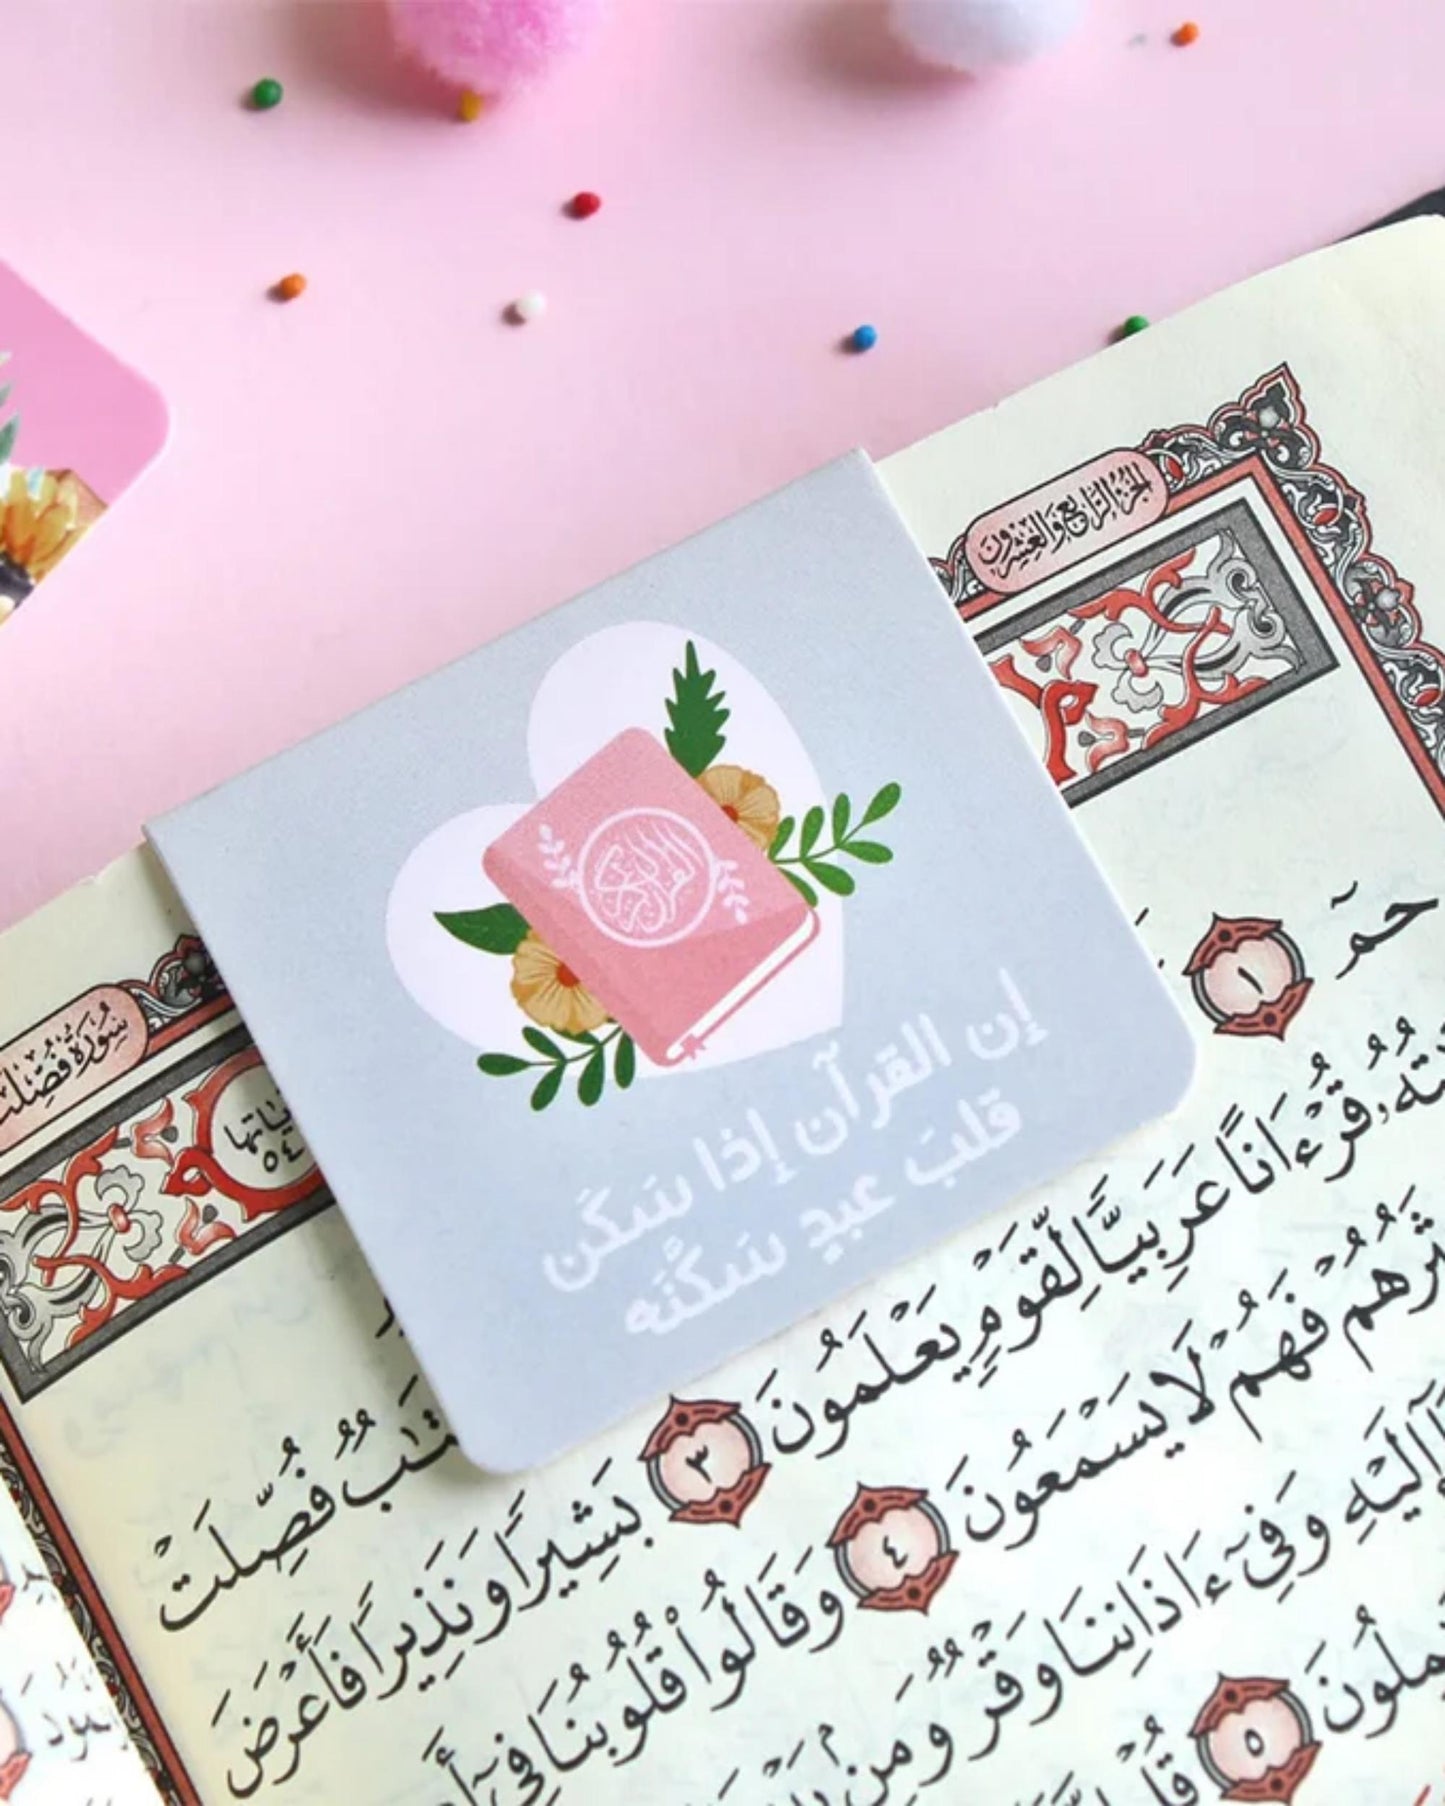 الجزء الرابع والعشرون
سُورَةُ فُصِّلَت
آياتها
٥٤
القرآن الكريم
إن القرآن إذا سَكَن
قلبَ عبدٍ سَكَّنَه
حمٓ ١
كِتَٰبٌ فُصِّلَتْ
قُرْءَانًا عَرَبِيًّا لِّقَوْمٍ يَعْلَمُونَ ٣ بَشِيرًا وَنَذِيرًا فَأَعْرَضَ
فَهُمْ لَا يَسْمَعُونَ ٤ وَقَالُوا۟ قُلُوبُنَا فِىٓ
إِلَيْهِ وَفِىٓ ءَاذَانِنَا وَقْرٌ وَمِنۢ
٥ قُلْ